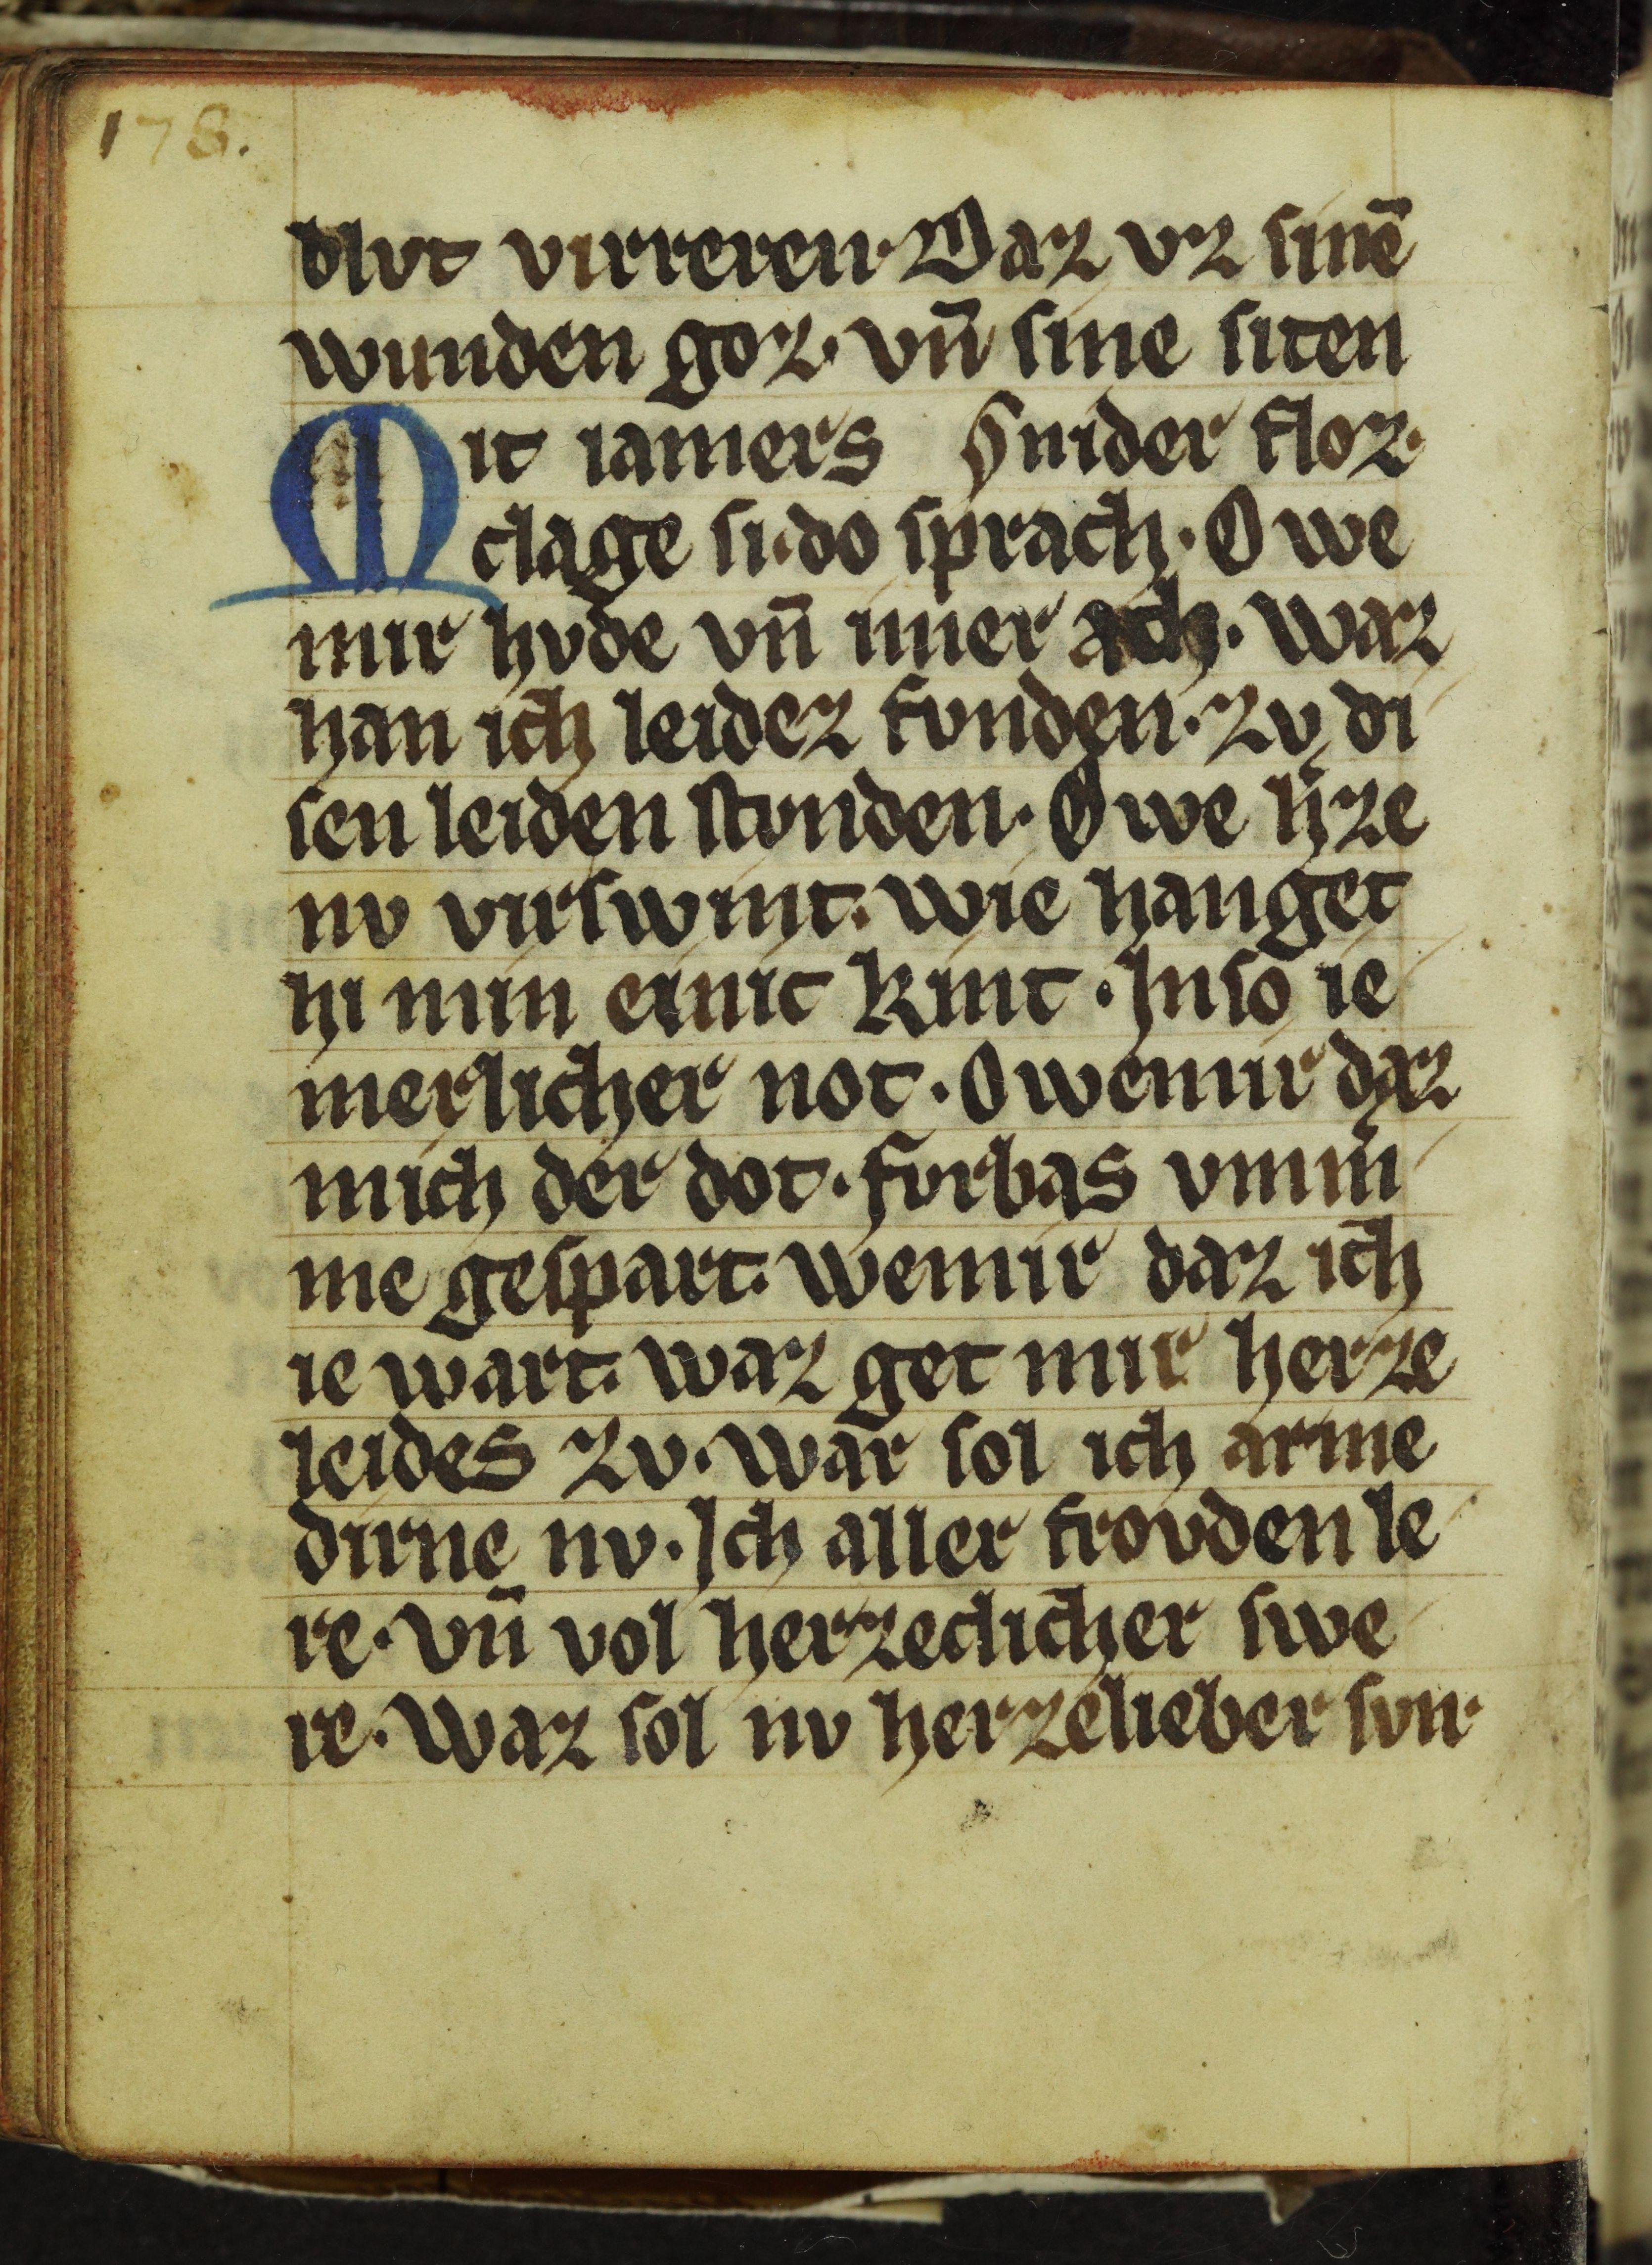 178.
blvt virreren. Daz vz sinē
wunden goz. vn̄ sine siten
Mit iamers snider floz.
clage si. do sprach. O we
mir hvde vn̄ im̄er ach. waz
han ich leidez fvnden. zv di
sen leiden stvnden. O we h̄ze
nv virswint. wie hanget
hi min einic kint. In so ie
merlicher not. O we mir daz
mich der dot. fvrbas vmm̄
me gespart. we mir daz ich
ie wart. waz get mir herze
leides zv. war sol ich arme
dirne nv. Ich aller frovden le
re. vn̄ vol herzeclicher swe
re. waz sol nv herzelieber svn.